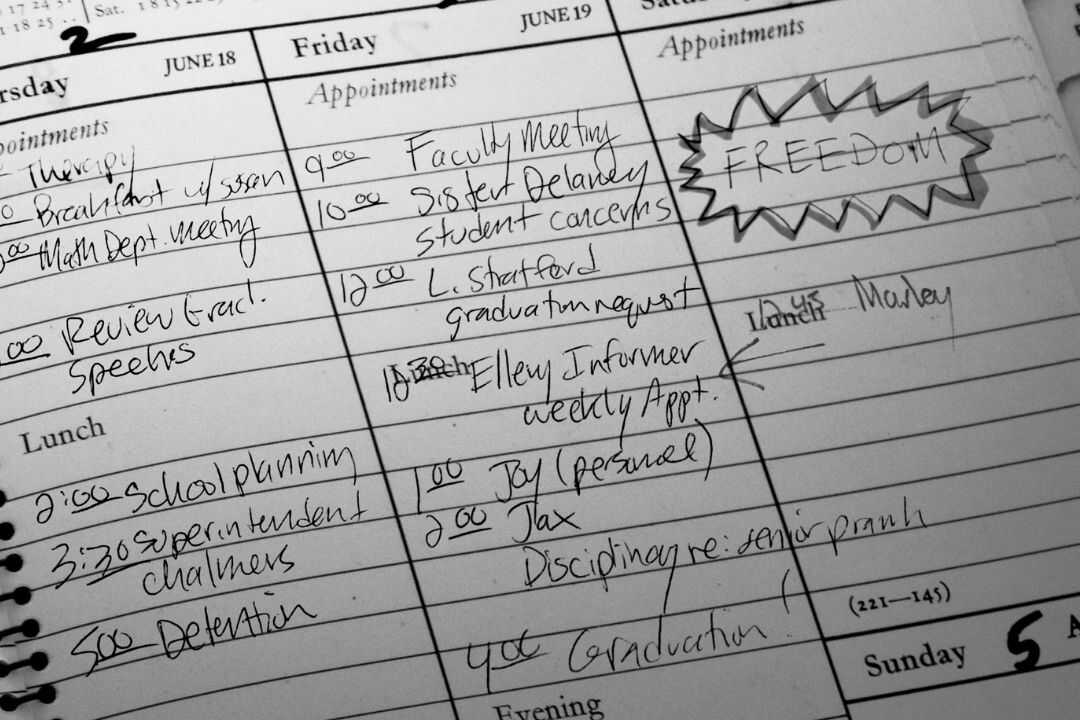 17 24
18 25
Sat. 18 15
2
rsday JUNE 18
pointments
Therapy
Breakfast w/ susan
00 Math Dept. meeting
00 Review Grad.
Speeches
Lunch
2:00 School planning
3:30 superintendent
chalmers
500 Detention
Friday JUNE 19
Appointments
9 00 Faculty Meeting
10 00 Sister Delaney
student concerns
12 00 L. Stratford
graduation request
Lunch
Ellery Informer
weekly Appt.
1 00 Joy (personal)
2 00 Jax
Disciplinary re: senior prank
4 00 Graduation!
Evening
Appointments
FREEDOM
Lunch 12 45 Marley
(221—145)
Sunday 5